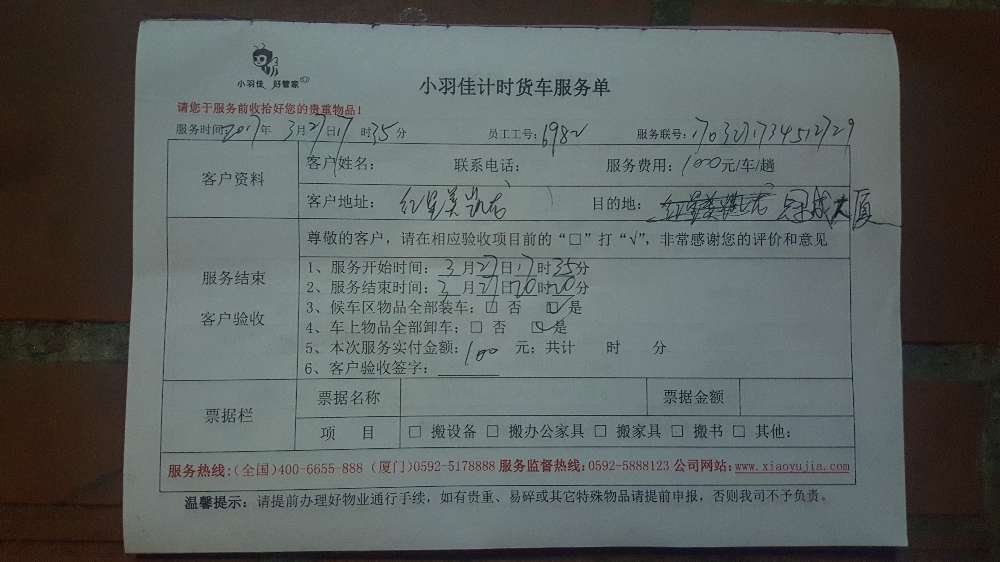 小羽佳 好管家
小羽佳计时货车服务单
请您于服务前收拾好您的贵重物品!
服务时间: 2017年 3月27日17时35分 员工工号: 6982 服务联号:
客户资料
客户姓名: 联系电话: 服务费用: 100元/车/趟
客户地址: 红星美凯龙 目的地: 冠成大厦
服务结束
客户验收
尊敬的客户，请在相应验收项目前的“□”打“√”，非常感谢您的评价和意见
1、服务开始时间: 3月27日17时35分
2、服务结束时间: 3月27日20时20分
3、候车区物品全部装车: □ 否 ☑ 是
4、车上物品全部卸车: □ 否 ☑ 是
5、本次服务实付金额: 100 元; 共计 时 分
6、客户验收签字:
票据栏
票据名称 票据金额
项 目 □ 搬设备 □ 搬办公家具 □ 搬家具 □ 搬书 □ 其他:
服务热线:(全国)400-6655-888 (厦门)0592-5178888 服务监督热线:0592-5888123 公司网站: www.xiaoyujia.com
温馨提示: 请提前办理好物业通行手续，如有贵重、易碎或其它特殊物品请提前申报，否则我司不予负责。